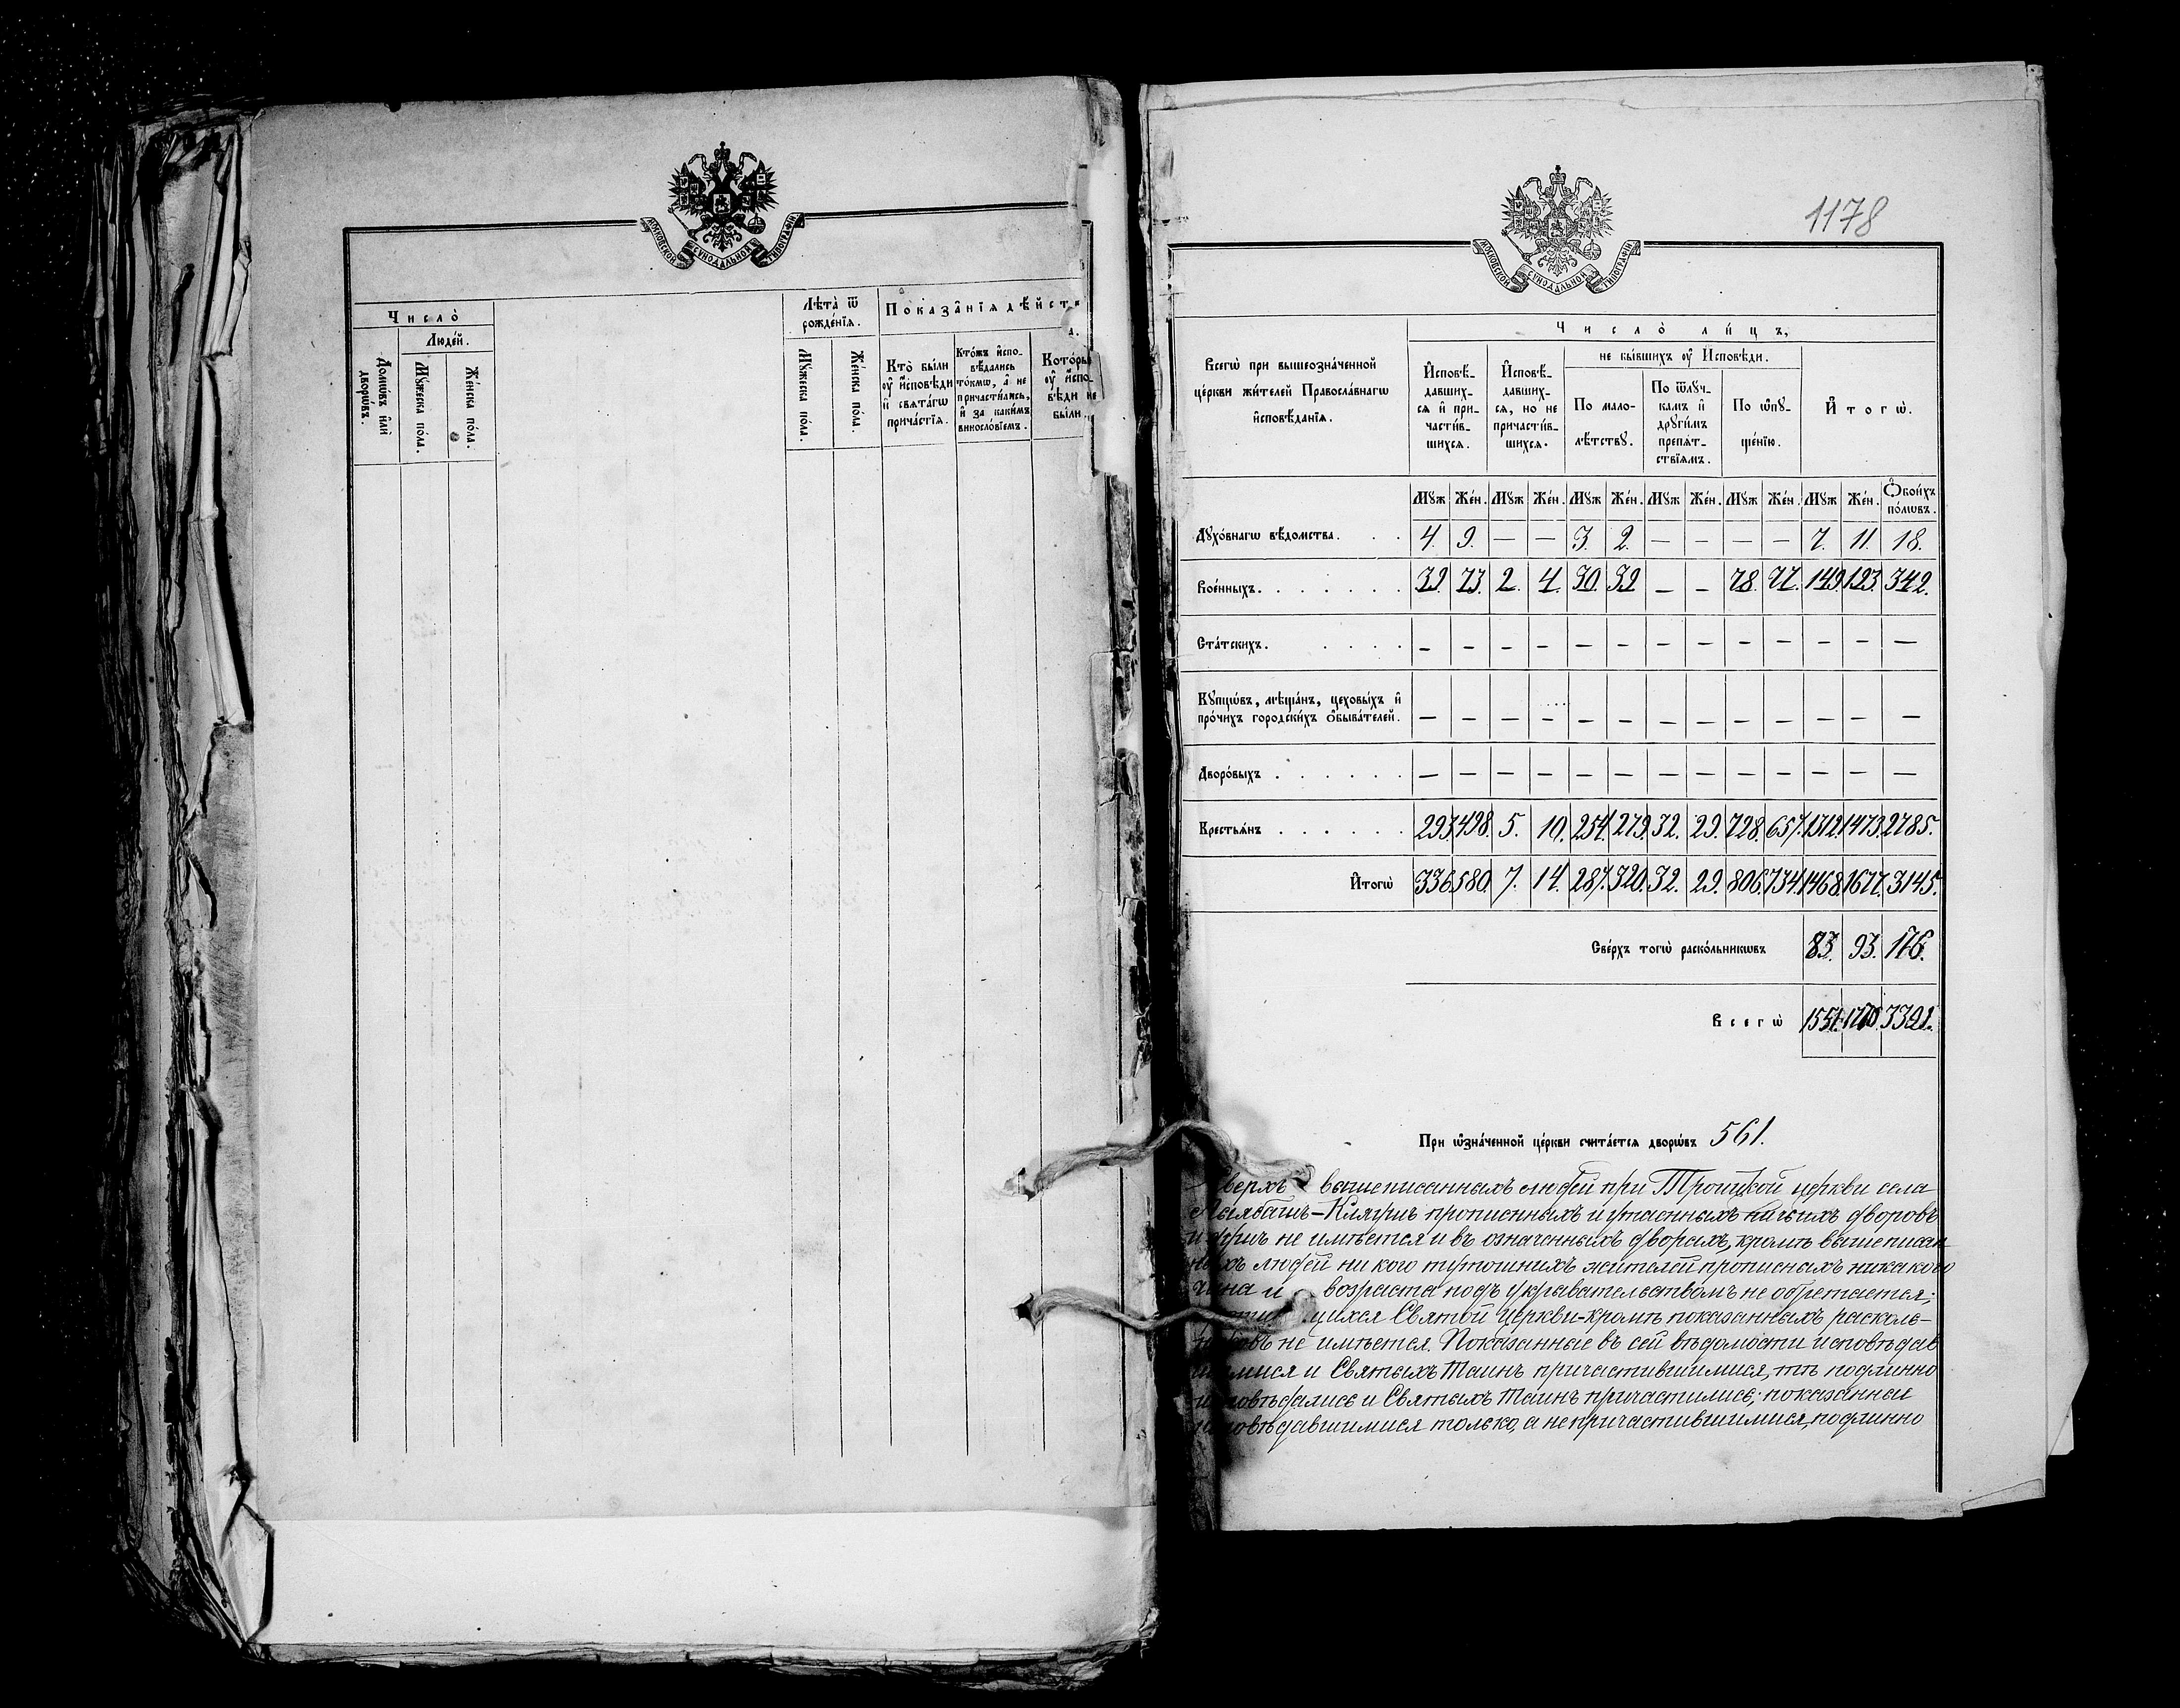 МОСКОВСКОЙ СУНОДАЛЬНОЙ ТИПОГРАФІИ
Число̀
Домѡ́въ и҆лѝ дворѡ́въ.
Люде́й.
Мꙋ́жеска по́ла.
Же́нска по́ла.
Лѣ́та ѿ рожде́нїѧ.
Мꙋ́жеска по́ла.
Же́нска по́ла.
Показа̑нїѧ дѣ́йст
Кто̀ бы́ли ᲂу҆ и҆сповѣ́ди и҆ свѧта́гѡ прича́стїѧ.
Кто́жъ и҆спо-
вѣ́дались то́кмѡ, а҆ не причасти́лись, и҆ за каки́мъ винослѡ́вїемъ.
Кото́ры ᲂу҆ и҆спо-
вѣ́ди не бы́ли.
1178
МОСКОВСКОЙ СУНОДАЛЬНОЙ ТИПОГРАФІИ
Всегѡ̀ при вышеозна́ченной це́ркви жи́телей Правосла́внагѡ и҆сповѣ́данїѧ.
Число̀ ли́цъ,
И҆сповѣ́-
давших-
сѧ и҆ при-
части́в-
шихсѧ.
И҆сповѣ́-
давших-
сѧ, но не причасти́в-
шихсѧ.
не бы́вшихъ ᲂу҆ И҆сповѣ́ди.
По мало-
лѣ́тствꙋ.
По ѿлꙋч-
камъ и҆ дрꙋги́мъ препѧ́т-
ствїѧмъ.
По ѡ҆пꙋ-
ще́нїю.
И҆тогѡ̀.
Мꙋж Же́н. Мꙋж Же́н. Мꙋж Же́н. Мꙋж Же́н. Мꙋж Же́н. Мꙋж Же́н. Ѻ҆бои́хъ по́лѡвъ.
Дꙋхо́внагѡ вѣ́домства. 4. 9. — — 3. 2. — — — — 7. 11. 18.
Вое́нныхъ. 39. 73. 2. 4. 30. 39 — — 78. 77. 149. 193. 342.
Ста́тскихъ. — — — — — — — — — — — — —
Кꙋпцѡ́въ, мѣща́нъ, цеховы́хъ и҆ про́чихъ городски́хъ ѡ҆быва́телей. — — — — — — — — — — — — —
Дворо́выхъ — — — — — — — — — — — — —
Крестьѧ́нъ 293. 498. 5. 10. 254. 279. 32. 29. 728. 657. 1312. 1473. 2785.
И҆тогѡ̀ 336. 580. 7. 14. 287. 320. 32. 29. 806. 734. 1468. 1677. 3145.
Све́рхъ тогѡ̀ раско́льникѡвъ 83. 93. 176.
Всегѡ̀ 1551. 1770. 3321.
При ѡ҆зна́ченной це́ркви счита́етсѧ дворѡ́въ 561.
Сверхъ вышеписанныхъ людей при Троицкой церкви села
прописныхъ и утаенныхъ ничьихъ дворовъ
и душъ не имѣется и въ означенныхъ дворахъ, кромѣ вышеписан
ныхъ людей ни кого тутошнихъ жителей прописныхъ никакого
чина и возраста подъ укрывательствомъ не обретается;
щихся Святой Церкви-кромѣ показанныхъ расколь-
никовъ не имѣется. Показанные въ сей вѣдомости исповѣдав
шимися и Святыхъ Таинъ причастившимися, тѣ подлинно
исповѣдались и Святыхъ Таинъ причастились; показанные
исповѣдавшимися только, а не причастившимися, подлинно